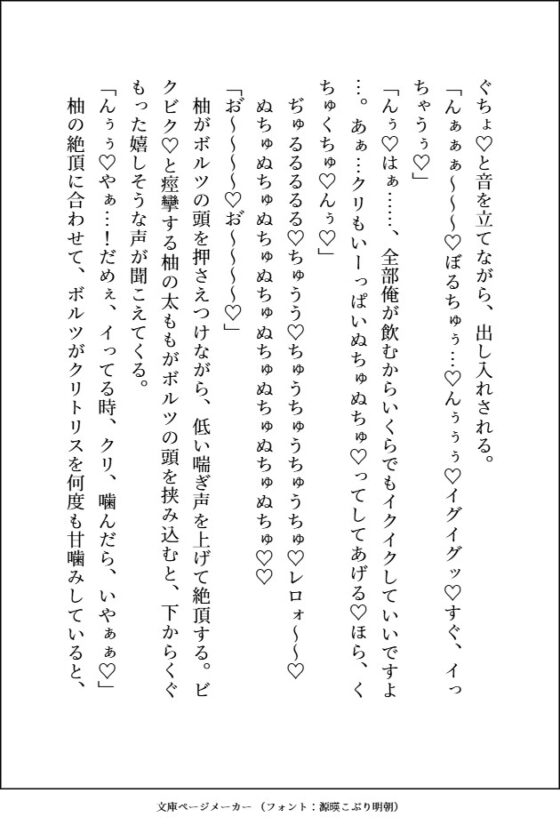 ぐちょ♡と音を立てながら、出し入れされる。
「んぁぁぁ〜〜〜♡ぼるちゅぅ…♡んぅぅぅ♡イグイグッ♡すぐ、イっ
ちゃうぅ♡」
「んぅ♡はぁ……、全部俺が飲むからいくらでもイクイクしていいですよ
…。あぁ…クリもいーっぱいぬちゅぬちゅ♡ってしてあげる♡ほら、く
ちゅくちゅ♡んぅ♡」
ぢゅるるるるる♡ちゅうう♡ちゅうちゅうちゅうちゅ♡レロォ〜〜♡
ぬちゅぬちゅぬちゅぬちゅぬちゅぬちゅぬちゅぬちゅぬちゅ♡♡
「お゛〜〜〜〜♡お゛〜〜〜〜♡」
柚がボルツの頭を押さえつけながら、低い喘ぎ声を上げて絶頂する。ビ
クビク♡と痙攣する柚の太ももがボルツの頭を挟み込むと、下からくぐ
もった嬉しそうな声が聞こえてくる。
「んぅぅ♡やぁ…！だめぇ、イってる時、クリ、噛んだら、いやぁぁ♡」
柚の絶頂に合わせて、ボルツがクリトリスを何度も甘噛みしていると、
文庫ページメーカー（フォント：源暎こぶり明朝）